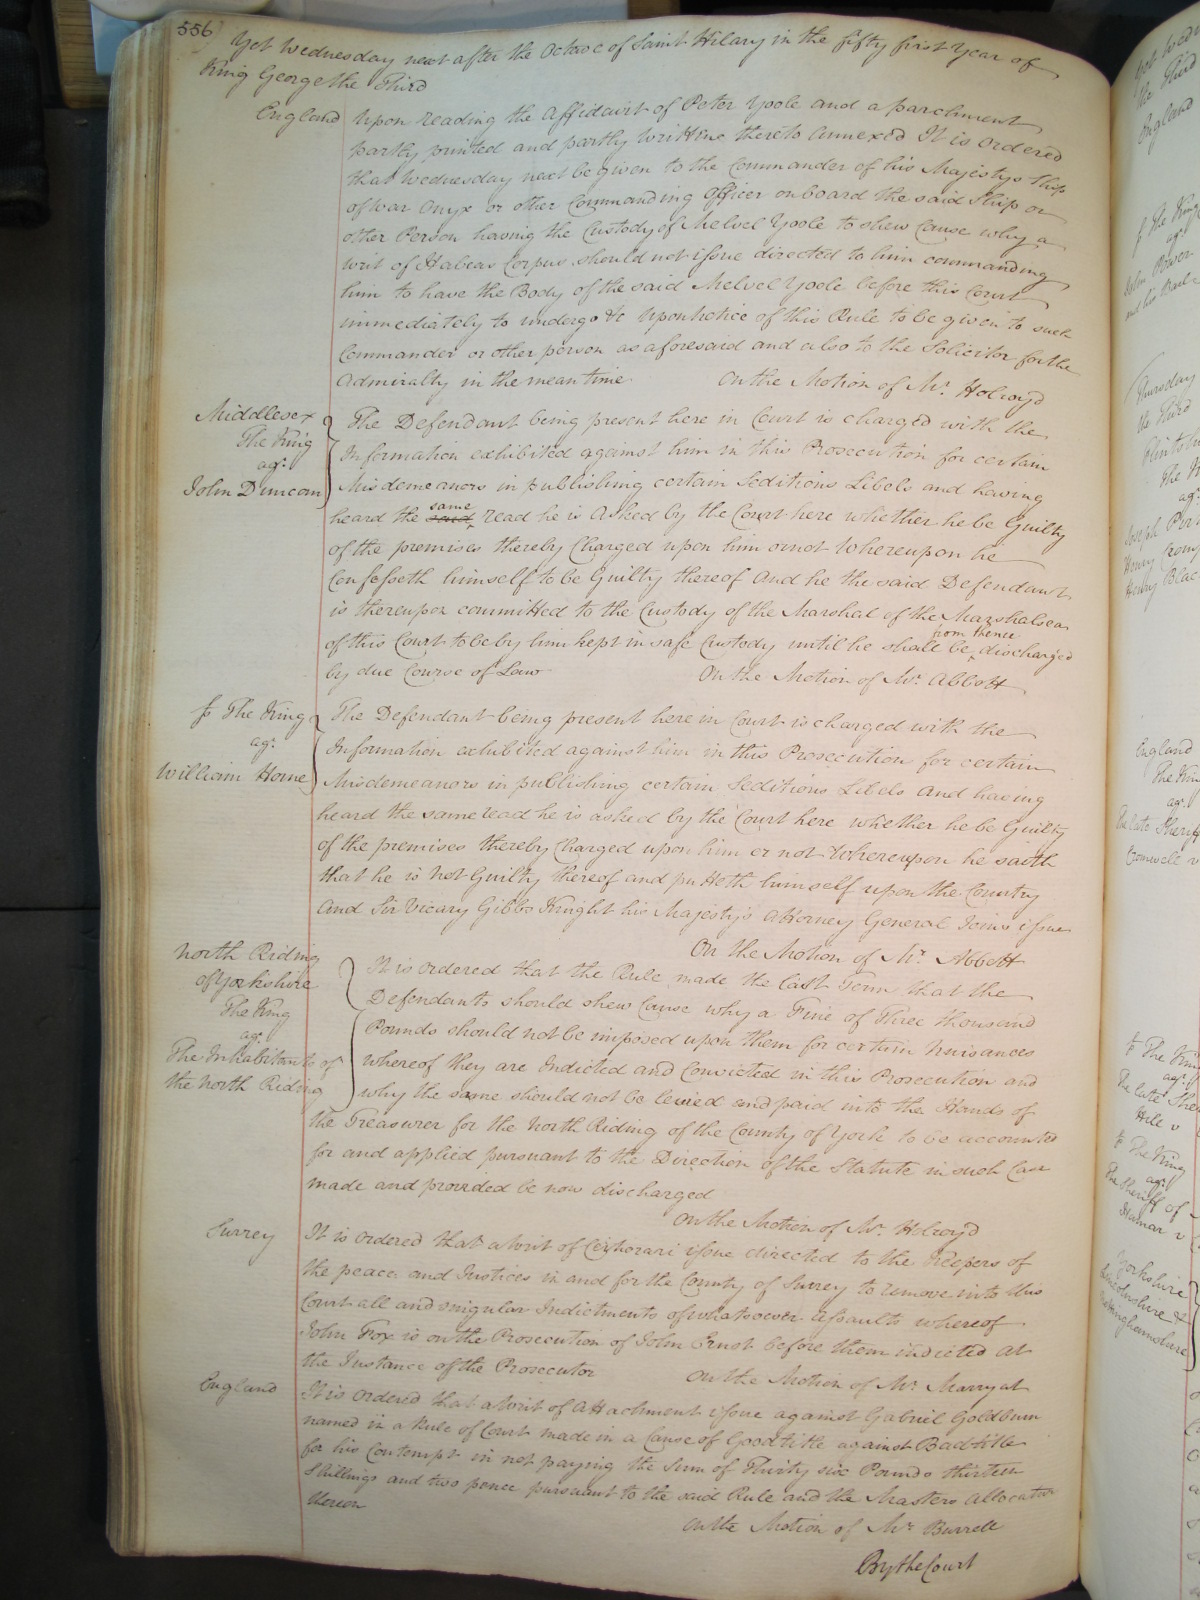 556
Yet Wednesday next after the Octave of Saint Hilary in the fifty first Year of
King George the Third
England Upon reading the Affidavit of Peter Yoole and a parchment
partly printed and partly written thereto annexed It is ordered
that Wednesday next be given to the Commander of his Majestys Ship
of War Onyx or other Commanding Officer on board the said Ship or
other Person having the Custody of Melvel Yoole to shew Cause why a
writ of Habeas Corpus should not issue directed to him commanding
him to have the Body of the said Melvel Yoole before this Court
immediately to undergo &c Upon notice of this Rule to be given to such
Commander or other person as aforesaid and also to the Solicitor for the
Admiralty in the mean time. On the Motion of Mr. Holroyd
Middlesex
The King
agt.
John Duncom
The Defendant being present here in Court is charged with the
Information exhibited against him in this Prosecution for certain
Misdemeanors in publishing certain Seditious Libels and having
heard the said same read he is asked by the Court here whether he be Guilty
of the premises thereby Charged upon him or not Whereupon he
Confesseth himself to be Guilty thereof And he the said Defendant
is thereupon committed to the Custody of the Marshal of the Marshalsea
of this Court to be by him kept in safe Custody until he shall be from thence discharged
by due Course of Law On the Motion of Mr. Abbott
The King
agt.
William Horne
The Defendant being present here in Court is charged with the
Information exhibited against him in this Prosecution for certain
Misdemeanors in publishing certain Seditious Libels And having
heard the same read he is asked by the Court here whether he be Guilty
of the premises thereby Charged upon him or not Whereupon he saith
that he is Not Guilty thereof and putteth himself upon the Country
And Sir Vicary Gibbs Knight his Majesty's Attorney General Joins issue
On the Motion of Mr. Abbott
North Riding
of Yorkshire
The King
agt.
The Inhabitants of
the North Riding
It is ordered that the Rule made the last Term that the
Defendants should shew Cause why a Fine of Three thousand
Pounds should not be imposed upon them for certain Nuisances
whereof they are Indicted and Convicted in this Prosecution and
why the same should not be levied and paid into the Hands of
the Treasurer for the North Riding of the County of York to be accounted
for and applied pursuant to the Direction of the Statute in such Case
made and provided be now discharged
On the Motion of Mr. Holroyd
Surrey It is ordered that a Writ of Certiorari issue directed to the Keepers of
the peace and Justices in and for the County of Surrey to remove into this
Court all and singular Indictments of whatsoever Assaults whereof
John Fox is on the Prosecution of John Ernst before them indicted at
the Instance of the Prosecutor On the Motion of Mr. Marryat
England It is ordered that a Writ of Attachment issue against Gabriel Goldbum
named in a Rule of Court made in a Cause of Goodtitle against Badtitle
for his Contempt in not paying the Sum of Thirty six Pounds thirteen
Shillings and two pence pursuant to the said Rule and the Masters Allocatur
thereon
On the Motion of Mr. Burrell
By the Court
England
The King
agt.
Thursday
the Third